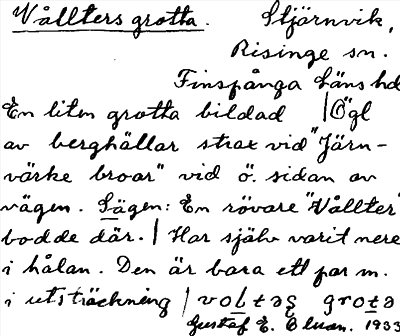 Vållters grotta. Stjärnvik,
Risinge sn.
Finspånga läns hd
En liten grotta bildad | Ögl
av berghällar strax vid "Järn-
värke broar" vid ö. sidan av
vägen. Sägen: En rövare "Vållter"
bodde där. | Har själv varit nere
i hålan. Den är bara ett par m.
i utsträckning | grotə
Gustaf E. 1933